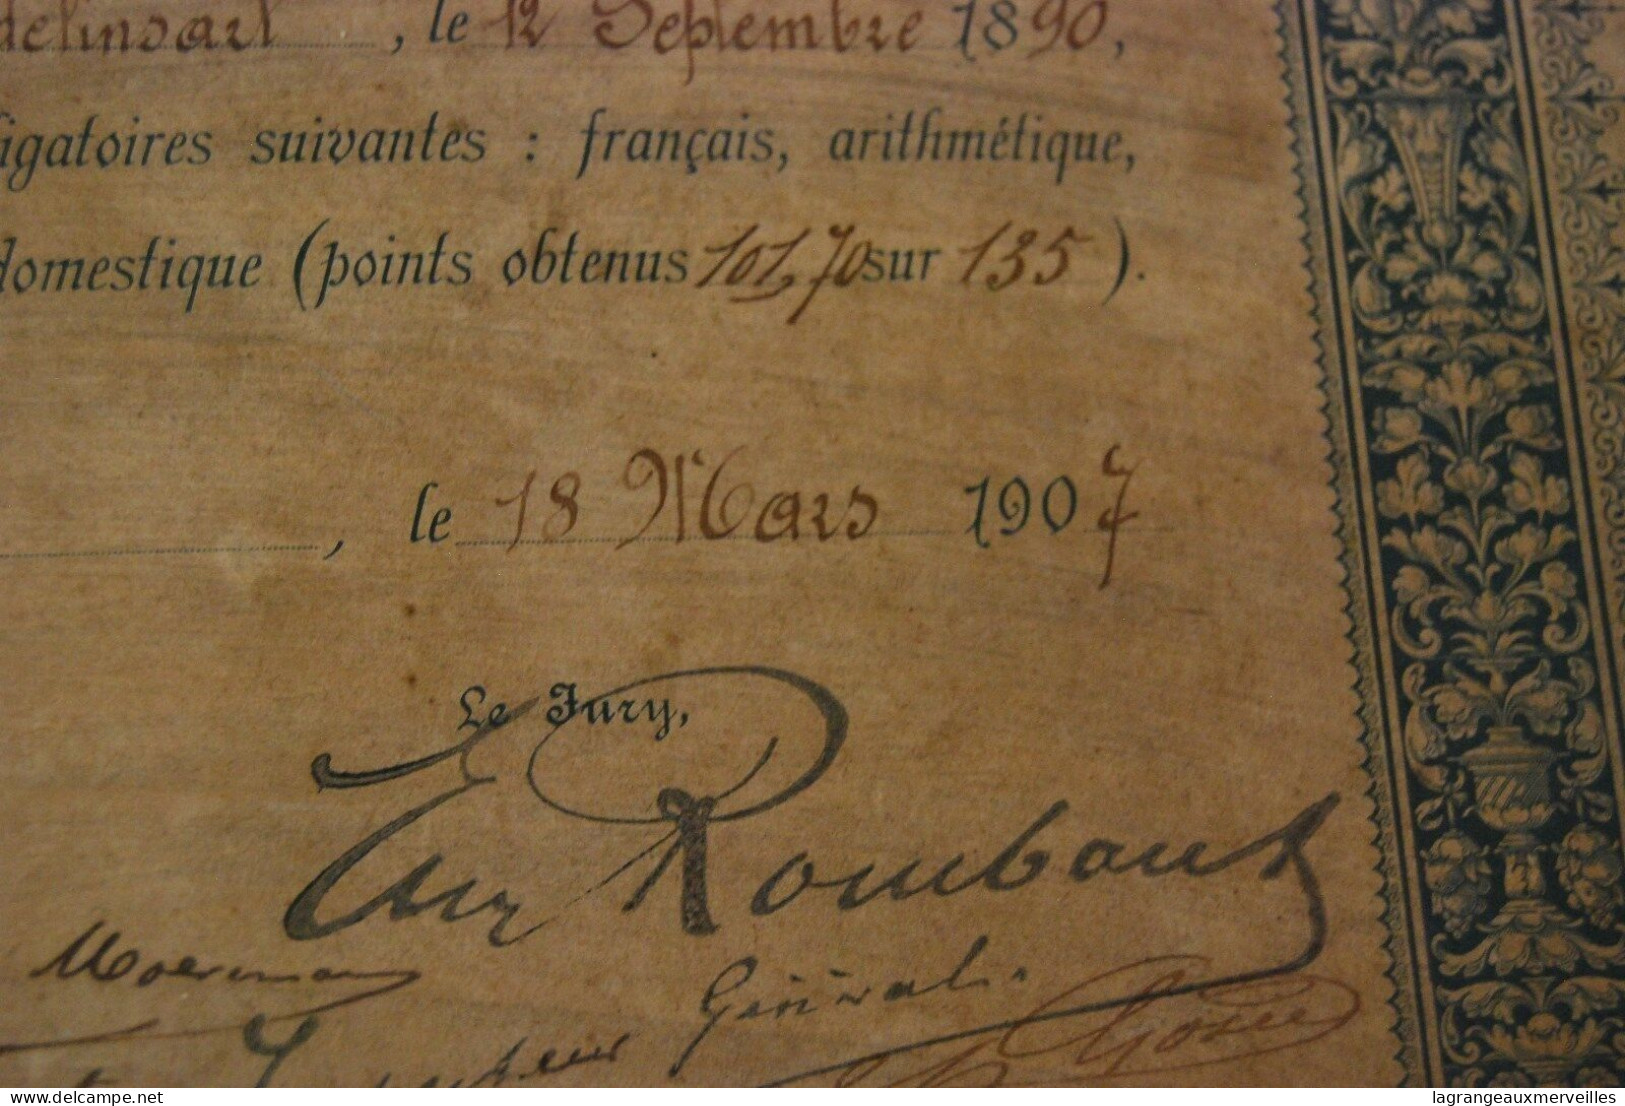 delinsart, le 12 Septembre 1890,
ligatoires suivantes : français, arithmétique,
domestique (points obtenus 101,70 sur 135 ).
, le 18 Mars 1907
Le Jury,
Rombaut
Moerman
Général.
lagrangeauxmerveilles